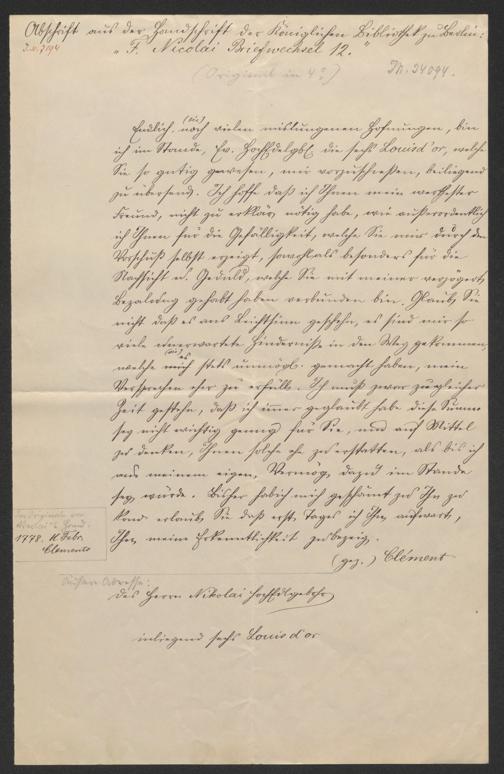 Abschrift aus der Handschrift der Königlichen Bibliothek zu Berlin:
"F. Nicolai Briefwechsel 12."
(Original in 4º)
Th. 34094.
Endlich, nach (sic) vielen mislungenen Hofnungen, bin
ich im Stande, Ew. HochEdelgb. die sechs Louisd'or, welche
Sie so gütig gewesen, mir vorzuschießen, beiliegend
zu übersend. Ich hoffe daß ich Ihnen mein werthester
Freund, nicht zu erklär. nötig habe, wie außerordentlich
ich Ihnen für die Gefälligkeit, welche Sie mir durch den
Vorschuß selbst erzeigt, sowohl als besonders für die
Nachsicht u. Geduld, welche Sie mit meiner verzögert.
Bezalung gehabt haben verbunden bin. Glaub. Sie
nicht daß es aus Leichtsinn geschehn, es sind mir so
viele unerwartete Hinderniße in den Weg gekommen,
welche mich (sic) es stets unmögl. gemacht haben, mein
Versprechen eher zu erfüll. Ich muß zwar zugleicher
Zeit gestehn, daß ich immer geglaubt habe diese Summe
sey nicht wichtig genug für Sie, um auf Mittel
zu denken, Ihnen solche ehe zu erstatten, als bis ich
aus meinem eigen. Vermög. dazu im Stande
sey. würde. Bisher hab ich mich geschämt zu Ihn. zu
kom. erlaub. Sie daß erst. Tages ich Ihn. aufwarte,
Ihn. meine Erkenntlichkeit zu bezeig.
(gez.) Clément
Im Original von
Nicolai's Hand:
1778. 11 Febr.
Clements
Adresse:
Des Herrn Nikolai HochEdelgebohr
inliegend sechs Louis d'or